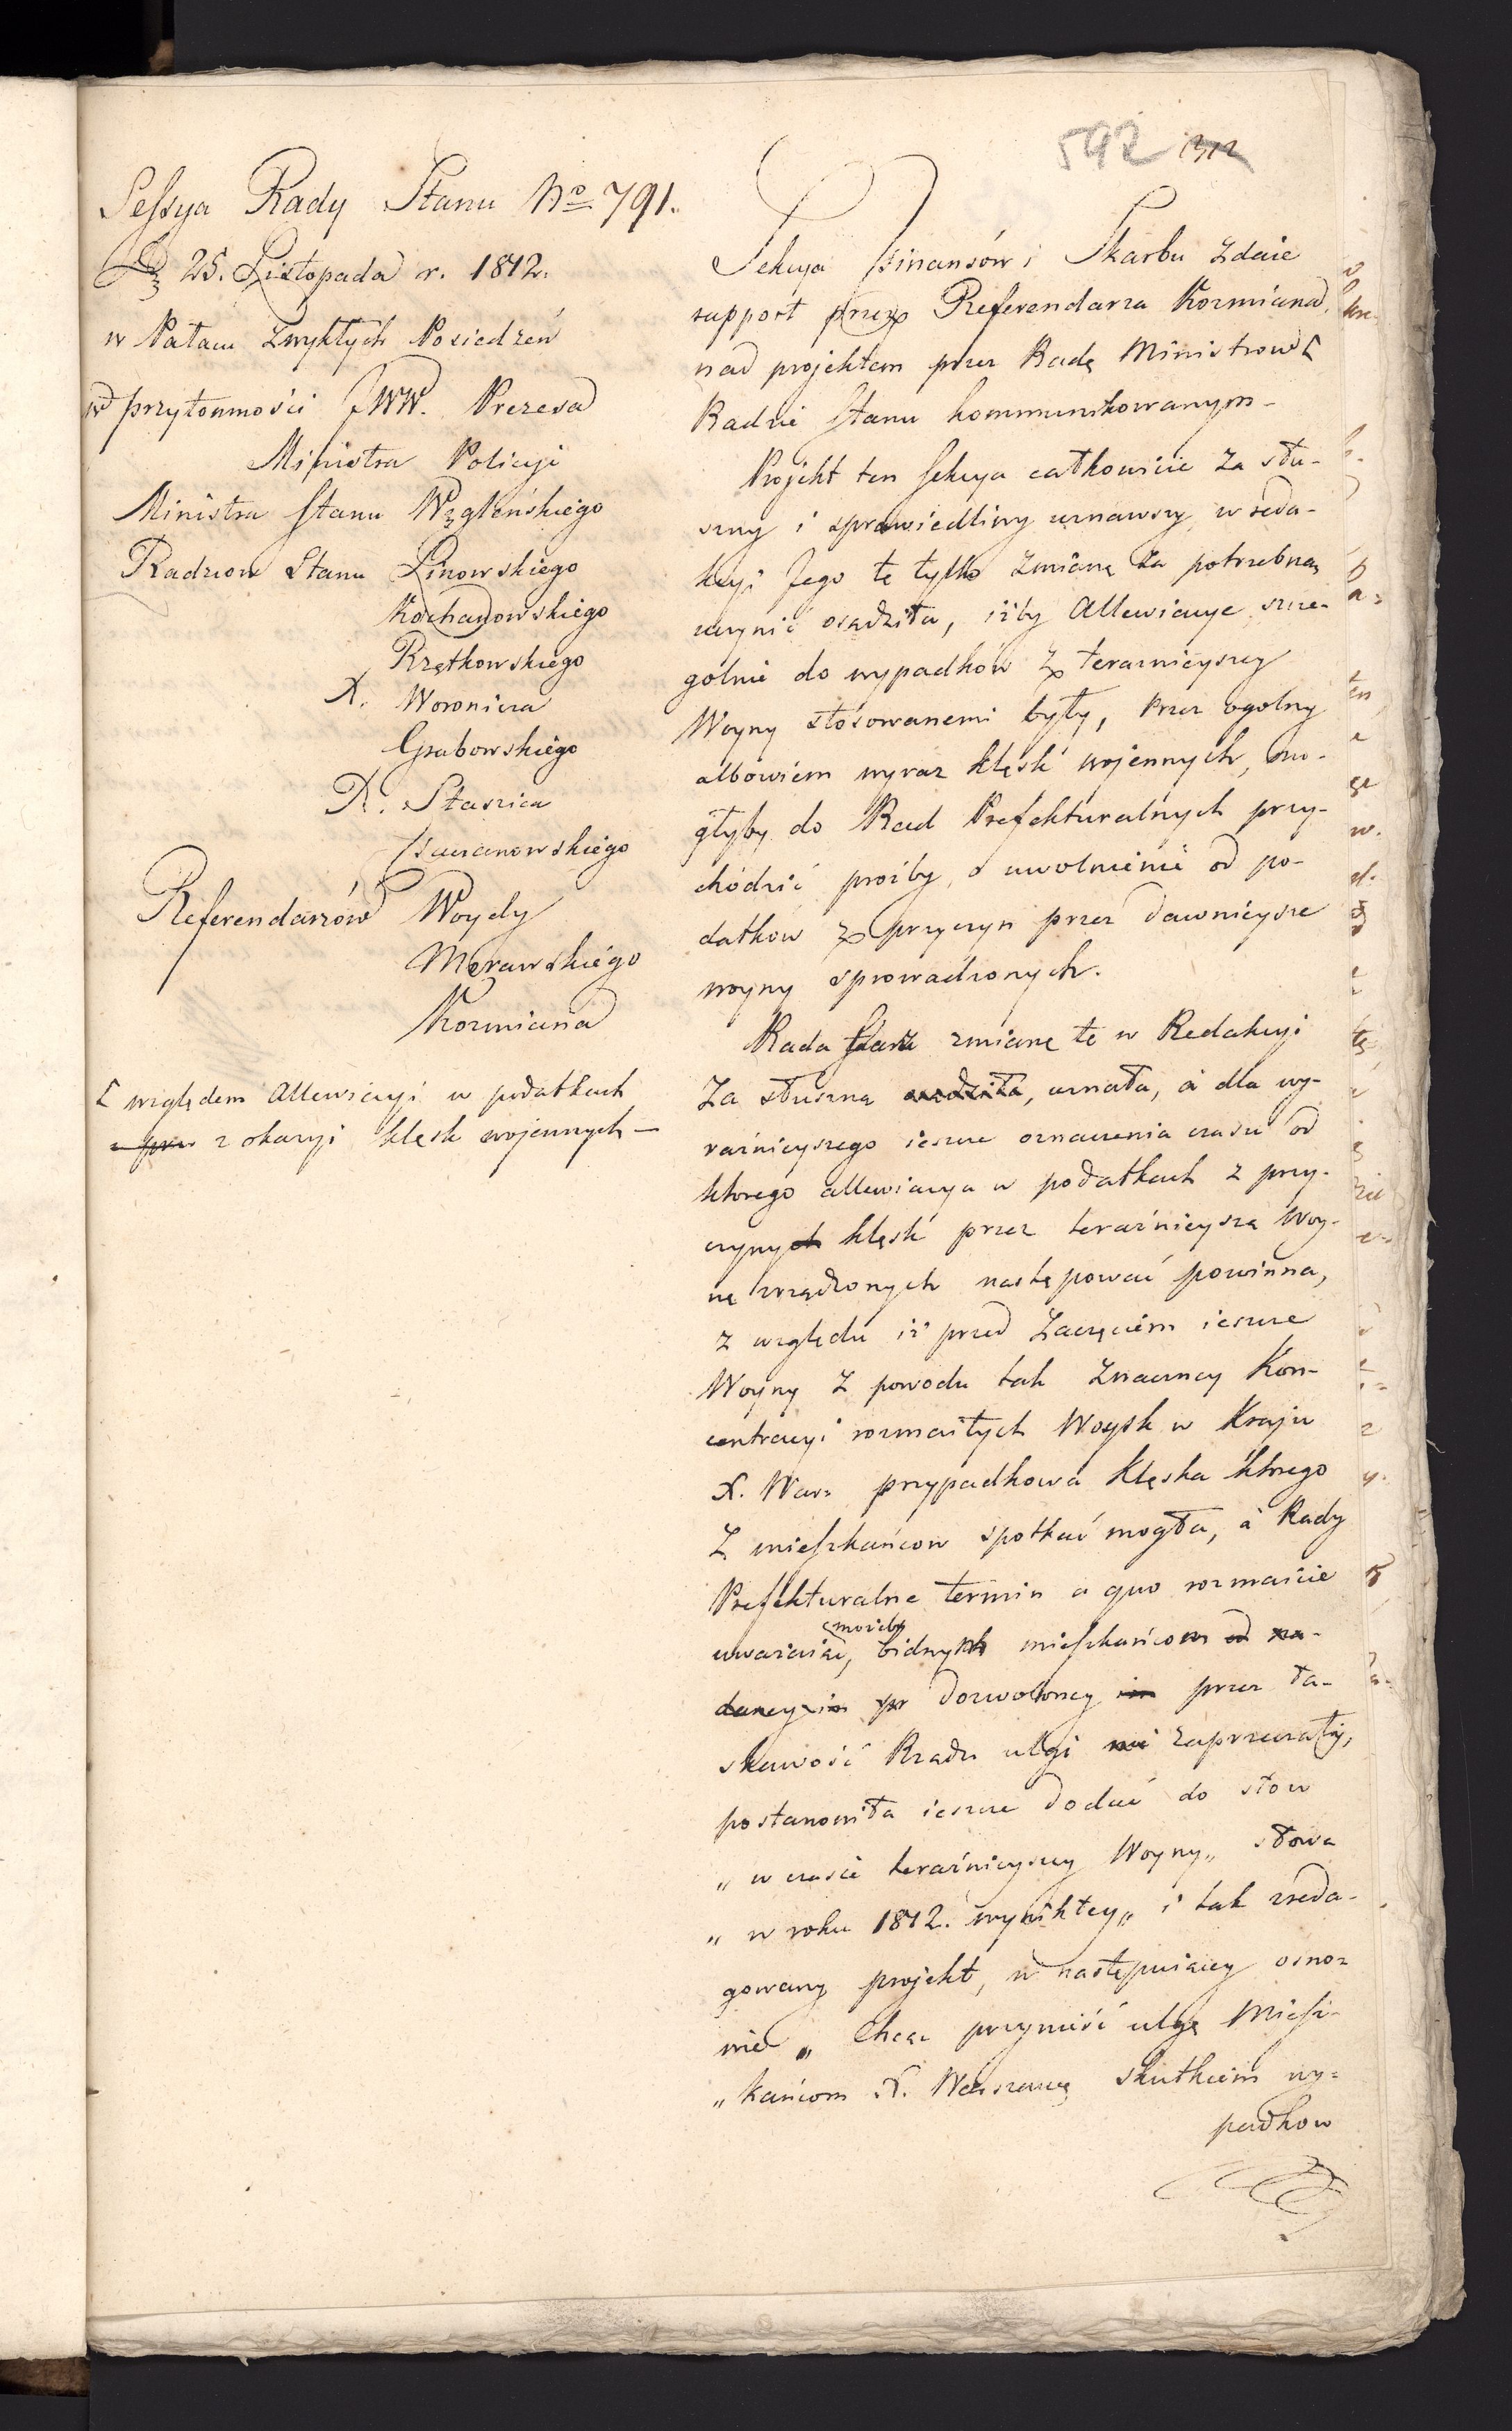 592 1312
Sessya Rady Stanu No 791.
Dz 25. Listopada r. 1812.
w Pałacu Zwykłych Posiedzeń
w przytomności JWW. Prezesa
Ministra Policyi
Ministra Stanu Węgleńskiego
Radzców Stanu Linowskiego
Kochanowskiego
Rzętkowskiego
X. Woronicza
Grabowskiego
X. Staszica
Referendarzów Woydy
Morawskiego
Kozmiana
[ względem Allewiacyi w podatkach
z okazyi klęsk wojennych —
Sekcya Finansów i Skarbu zdaie
rapport przez Referendarza Kozmiana
nad projektem przez Radę Ministrow [
Radzie Stanu kommunikowanym -
Projekt ten Sekcya całkowicie za słu-
szny i sprawiedliwy uznawszy, w reda-
kcyi Jego te tylko zmianę za potrzebną
uczynić osądziła, iżby Allewiacye szcze-
golnie do wypadków z teraznieyszey
Woyny stosowanemi były, przez ogolny
albowiem wyraz klęsk wojennych, mo-
głyby do Rad Prefekturalnych przy-
chodzić prożby o uwolnienie od po-
datkow z przyczyn przez dawnieysze
woyny sprowadzonych.
Rada Stanu zmianę te w Redakcyi
za słuszną osądziła, uznała, a dla wy-
raźnieyszego ieszcze oznaczenia czasu od
ktorego allewiacya w podatkach z przy-
czynych klęsk przez teraźnieyszą Woy-
nę zrządzonych następować powinna,
z względu iż przed zaczęciem ieszcze
Woyny z powodu tak znaczney Kon-
centracyi rozmaitych Woysk w Kraju
X. War: przypadkowa klęska ktorego
z mieszkańcow spotkać mogła, a Rady
Prefekturalne termin a quo rozmaicie
uważaiąc, możeby bidnych mieszkańcom od na-
daney im pr dozwoloney im przez ła-
skawość Rządu ulgi nie zaprzeczały,
postanowiła ieszcze dodać do słow
„ w czasie teraźnieyszey Woyny „ słowa
„ w roku 1812. wynikłey „ i tak zreda-
gowany projekt, w następuiącey osno-
wie „ Chcąc przynieść ulgę Miesz-
„ kańcom X. Warszawsk. skutkiem wy-
padkow